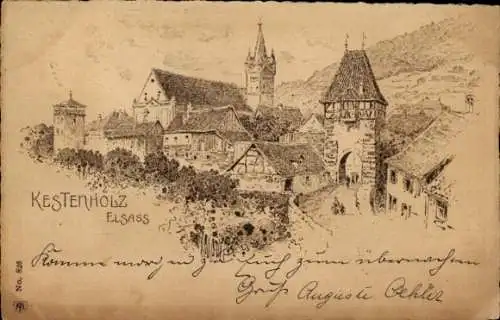 KESTENHOLZ
ELSASS
Komme morgen zu Euch zum übernachten
Gruß Auguste Oehler
No. 828